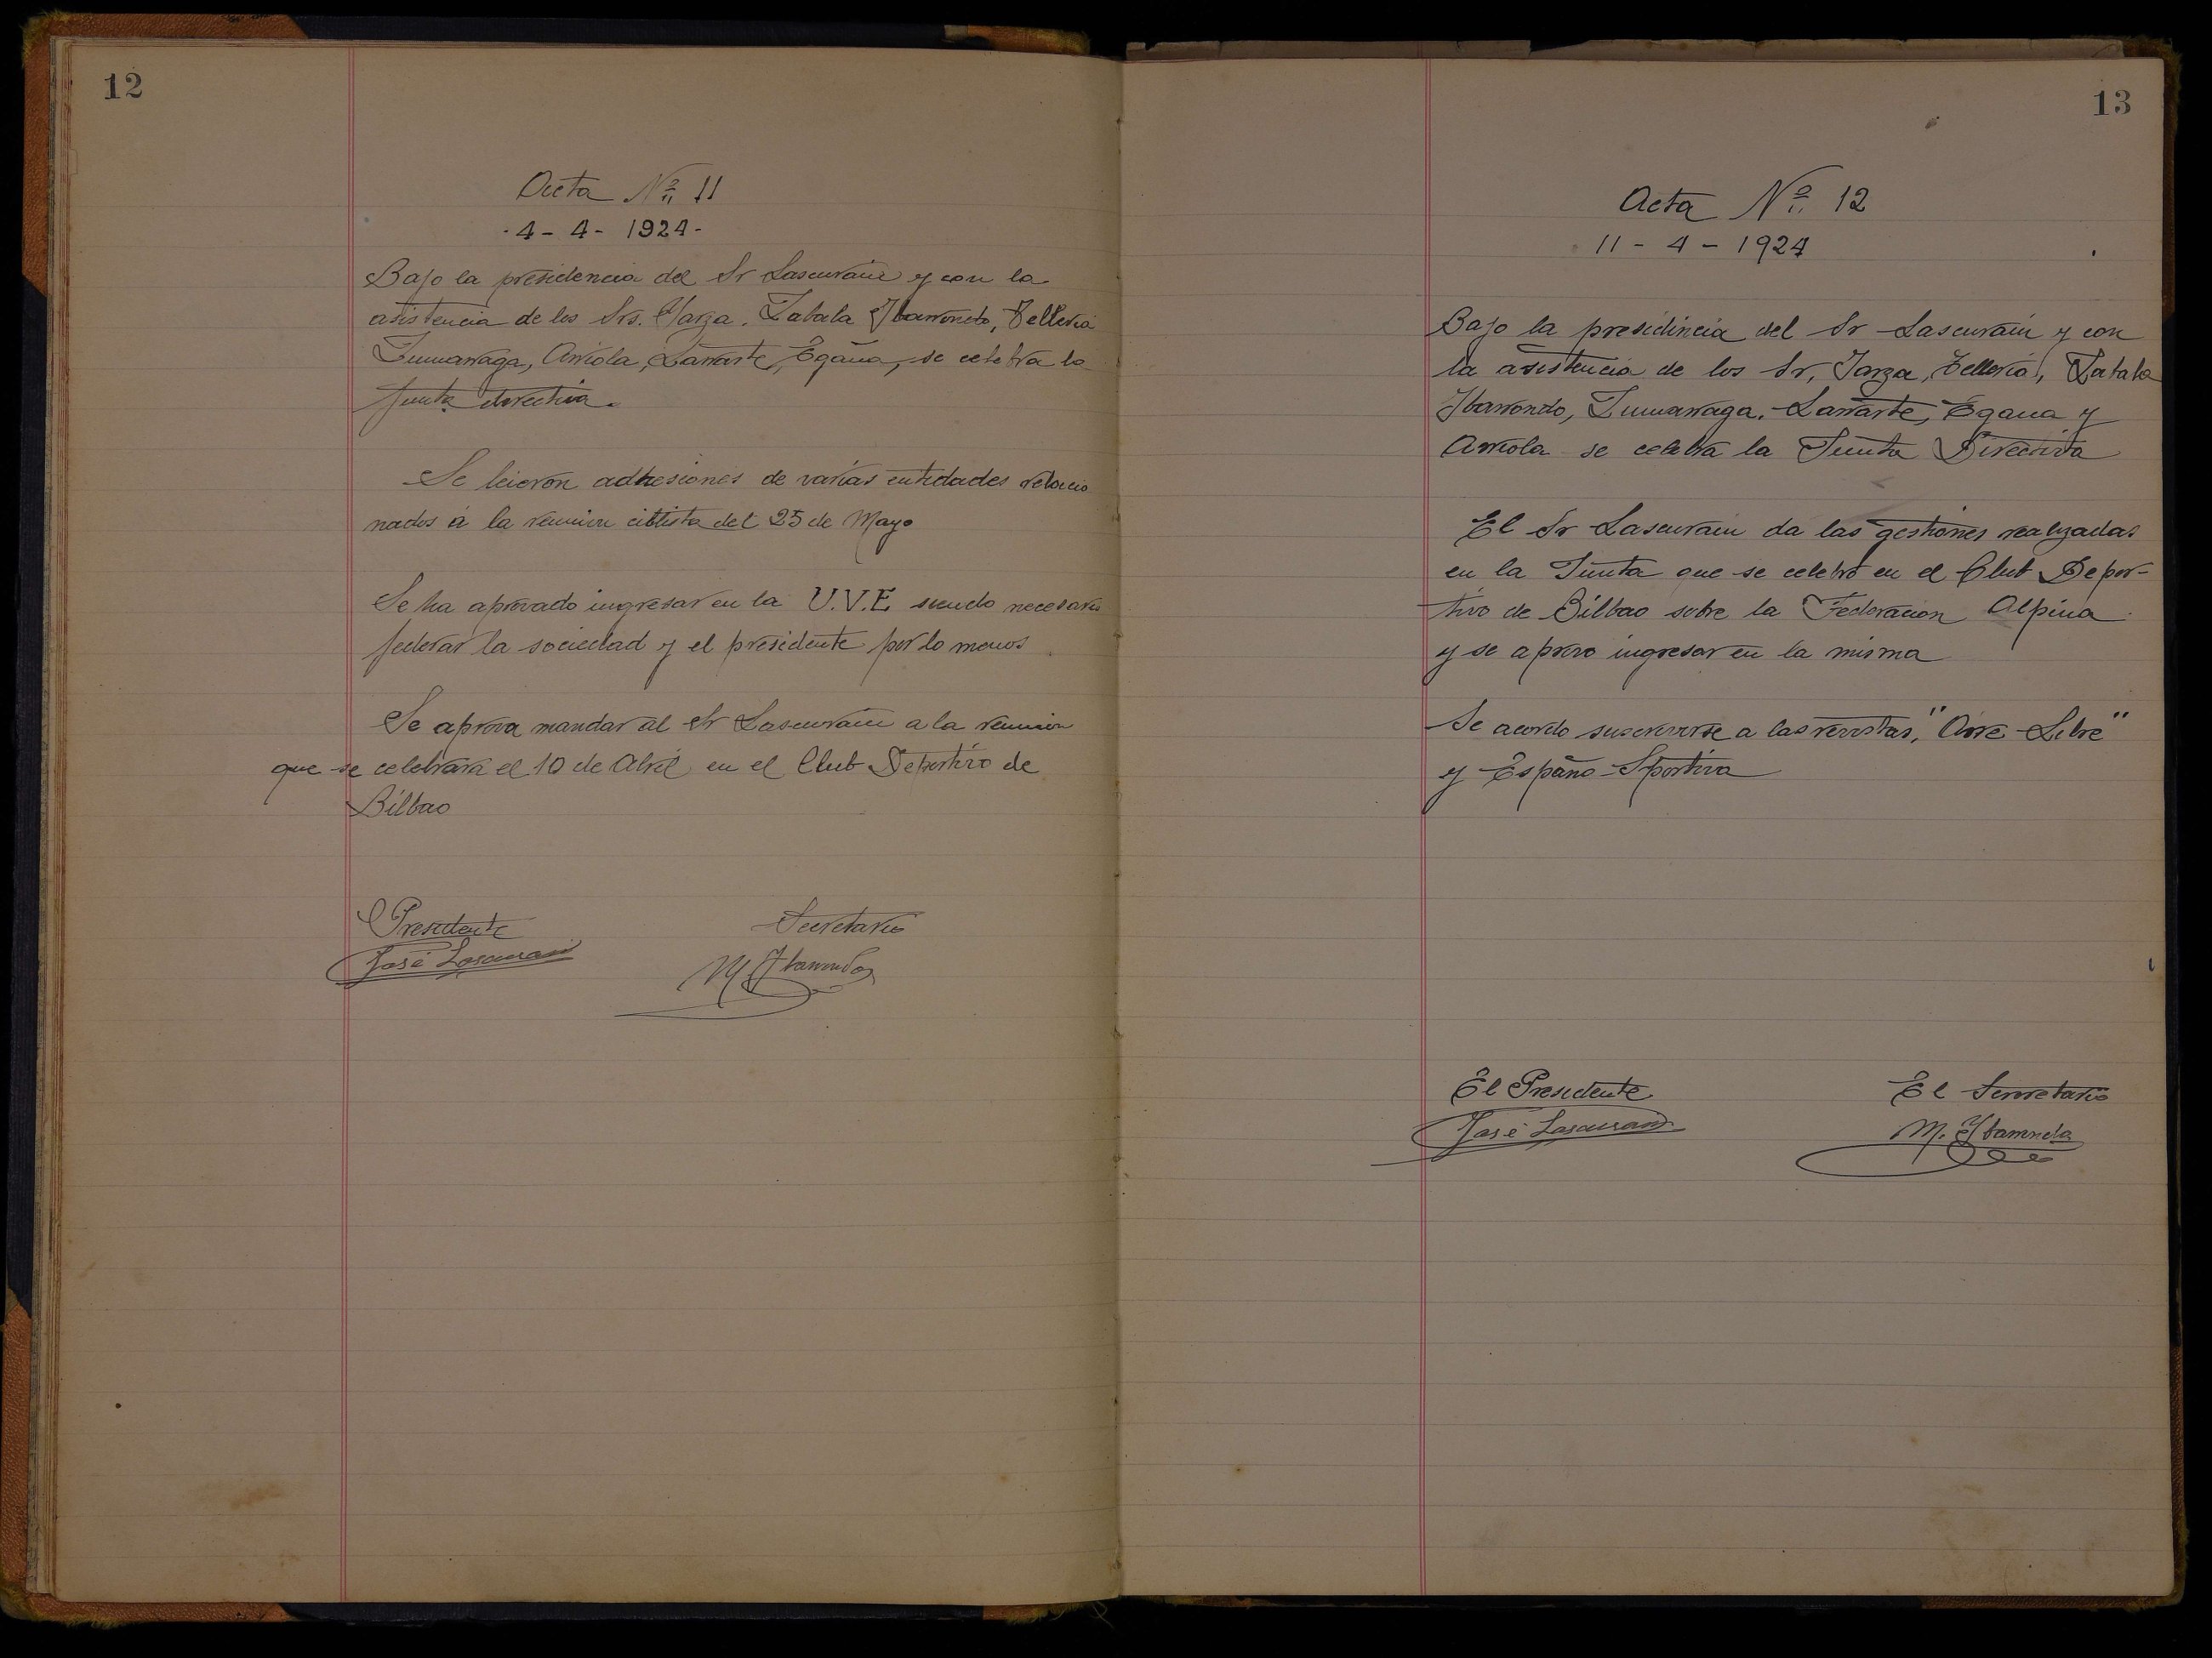 12
Acta Nº 11
-4-4-1924-
Bajo la presidencia del Sr Lascurain y con la
asistencia de los Srs. Yarza, Zabala Ybarrondo, Telleria
Zumarraga, Arriola, Larrarte, Egaña, se celebra la
junta directiva.
Se leieron adhesiones de varias entidades relacio
nados á la reunion ciclista del 25 de Mayo
Se ha aprovado ingresar en la U.V.E siendo necesario
federar la sociedad y el presidente por lo menos
Se aprova mandar al Sr Lascurain a la reunion
que se celebrara el 10 de Abril en el Club Deportivo de
Bilbao
Presidente Secretario
José Lascurain M. Ybarrondo
13
Acta Nº 12
11-4-1924
Bajo la presidincia del Sr Lascurain y con
la asistencia de los Sr, Yarza, Telleria, Zabala
Ybarrondo, Zumarraga, Larrarte, Egaua y
Arriola se celebra la Junta Directiva
El Sr Lascurain da las gestiones realizadas
en la Junta que se celebró en el Club Depor-
tivo de Bilbao sobre la Federacion Alpina
y se aprovo ingresar en la misma
Se acordo suscrivirse a las revistas, "Aire-Libre"
y España-Sportiva
El Presidente El Secretario
José Lascurain M. Ybarrondo